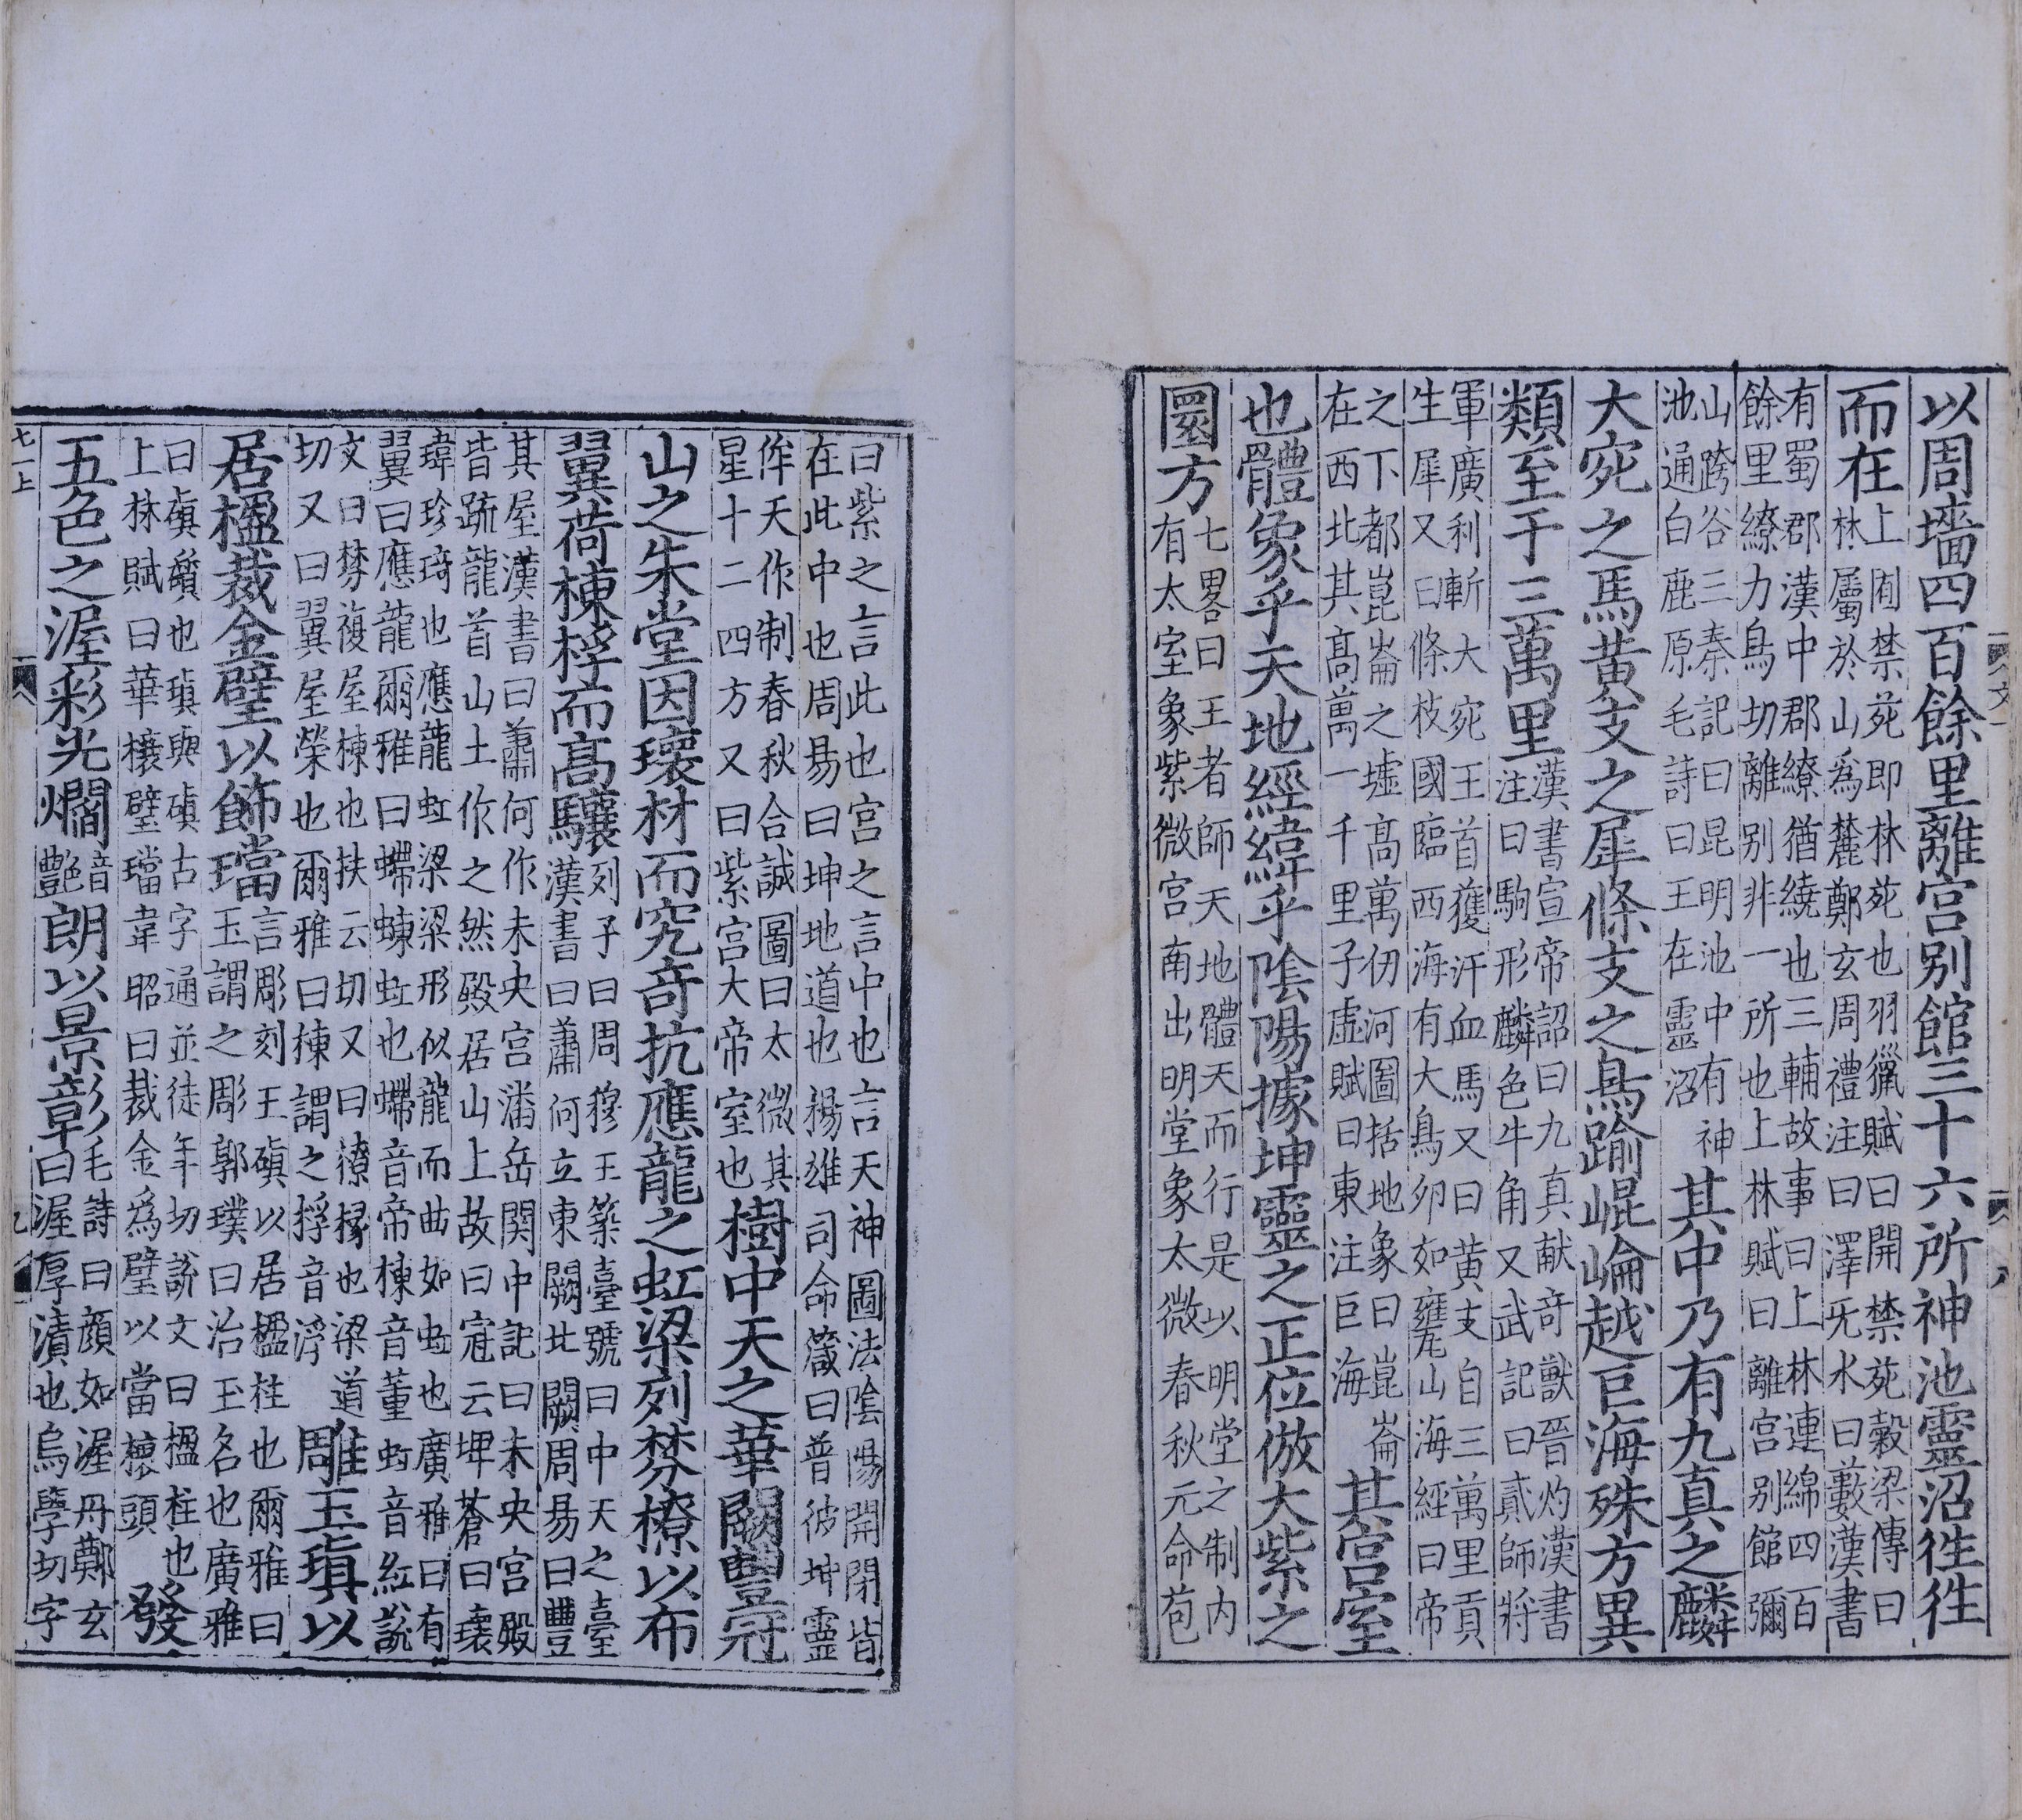 以周墻四百餘里離宫别館三十六所神池靈沼徃徃
而在上囿禁苑即林苑也羽獵賦曰開禁苑穀梁傳曰林屬於山爲麓鄭玄周禮注曰澤旡水曰藪漢書
有蜀郡漢中郡繚猶繞也三輔故事曰上林連綿四百餘里繚力鳥切離别非一所也上林賦曰離宫别館彌
山跨谷三秦記曰昆明池中有神池通白鹿原毛詩曰王在靈沼其中乃有九真之麟
大宛之馬黄支之犀條支之鳥踰崐崘越巨海殊方異
類至于三萬里漢書宣帝詔曰九真献竒獸晉灼漢書注曰駒形麟色牛角又武記曰貳師將
軍廣利斬大宛王首獲汗血馬又曰黄支自三萬里貢生犀又曰條枝國臨西海有大鳥卵如甕山海經曰帝
之下都崑崙之墟高萬仞河圖括地象曰崑崙在西北其高萬一千里子虛賦曰東注巨海其宫室
也體象乎天地經緯乎陰陽據坤靈之正位倣大紫之
圜方七畧曰王者師天地體天而行是以明堂之制内有太室象紫微宫南出明堂象太微春秋元命苞
曰紫之言此也宫之言中也言天神圖法陰陽開閉皆在此中也周易曰坤地道也揚雄司命箴曰普彼坤靈
侔天作制春秋合誠圖曰太微其星十二四方又曰紫宫大帝室也樹中天之華闕豐冠
山之朱堂因瓌材而究竒抗應龍之虹梁列棼橑以布
翼荷棟桴而高驤列子曰周穆王築臺號曰中天之臺漢書曰蕭何立東闕北闕周易曰豐
其屋漢書曰蕭何作未央宫潘岳関中記曰未央宫殿皆疏龍首山土作之然殿居山上故曰冠云埤蒼曰瓌
瑋珍琦也應龍虹梁梁形似龍而曲如虹也廣雅曰有翼曰應龍爾雅曰螮蝀虹也螮音帝棟音董虹音紅說
文曰棼複屋棟也扶云切又曰橑椽也梁道切又曰翼屋榮也爾雅曰棟謂之桴音浮雕玉瑱以
居楹裁金璧以飾璫言彫刻王磌以居楹柱也爾雅曰玉謂之彫郭璞曰治玉名也廣雅
曰磌礩也瑱與磌古字通並徒年切說文曰楹柱也上林賦曰華榱璧璫韋昭曰裁金爲璧以當榱頭發
五色之渥彩光爓音豔朗以景彰毛詩曰顔如渥丹鄭玄曰渥厚漬也烏學切字